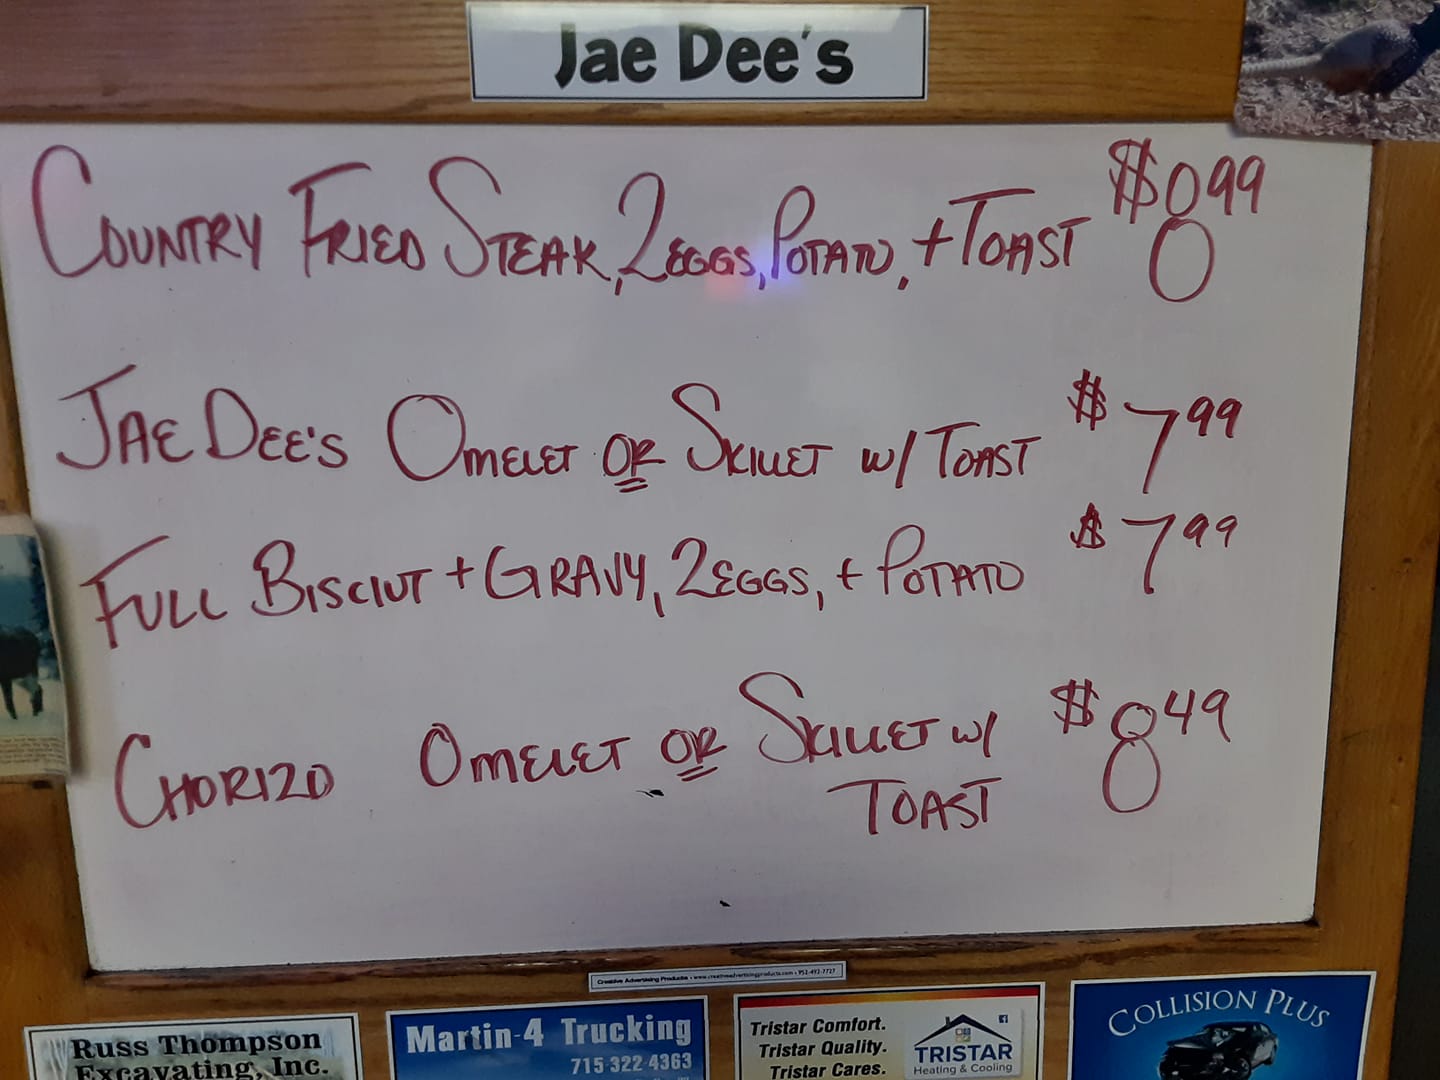 Jae Dee's
COUNTRY FRIED STEAK, 2 EGGS, POTATO, + TOAST $8.99
JAE DEE'S OMELET OR SKILLET W/ TOAST $7.99
FULL BISCIUT + GRAVY, 2 EGGS, + POTATO $7.99
CHORIZO OMELET OR SKILLET W/ $8.49
TOAST
Creative Advertising Products • www.creativeadvertisingproducts.com • 952-492-7727
Russ Thompson
Excavating, Inc.
Martin-4 Trucking
715-322-4363
Tristar Comfort.
Tristar Quality.
Tristar Cares.
TRISTAR
Heating & Cooling
COLLISION PLUS